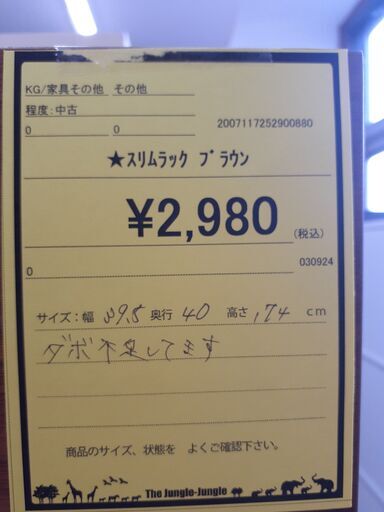 KG/家具その他 その他
程度:中古
0 0 2007117252900880
★スリムラック ブラウン
¥2,980 (税込)
0 030924
サイズ:幅 39.5 奥行 40 高さ 174 cm
ダボ不足してます
商品のサイズ、状態を よくご確認下さい。
The Jungle-Jungle